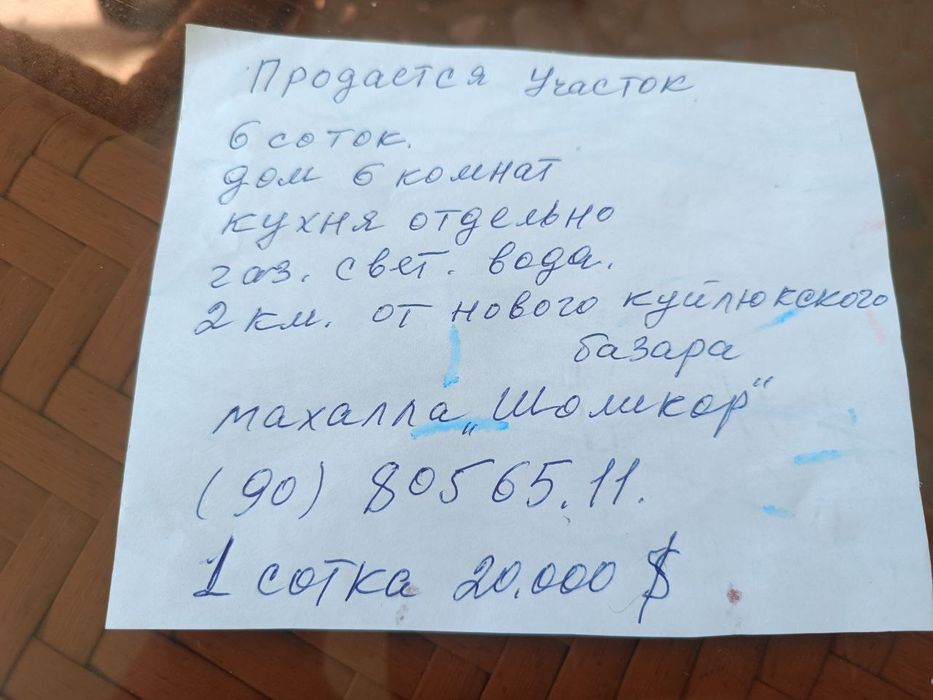 Продается Участок
6 соток.
дом 6 комнат
кухня отдельно
газ. свет. вода.
2 км. от нового куйлюкского
базара
махалла „Шоликор"
(90) 805 65.11.
1 сотка 20.000 $